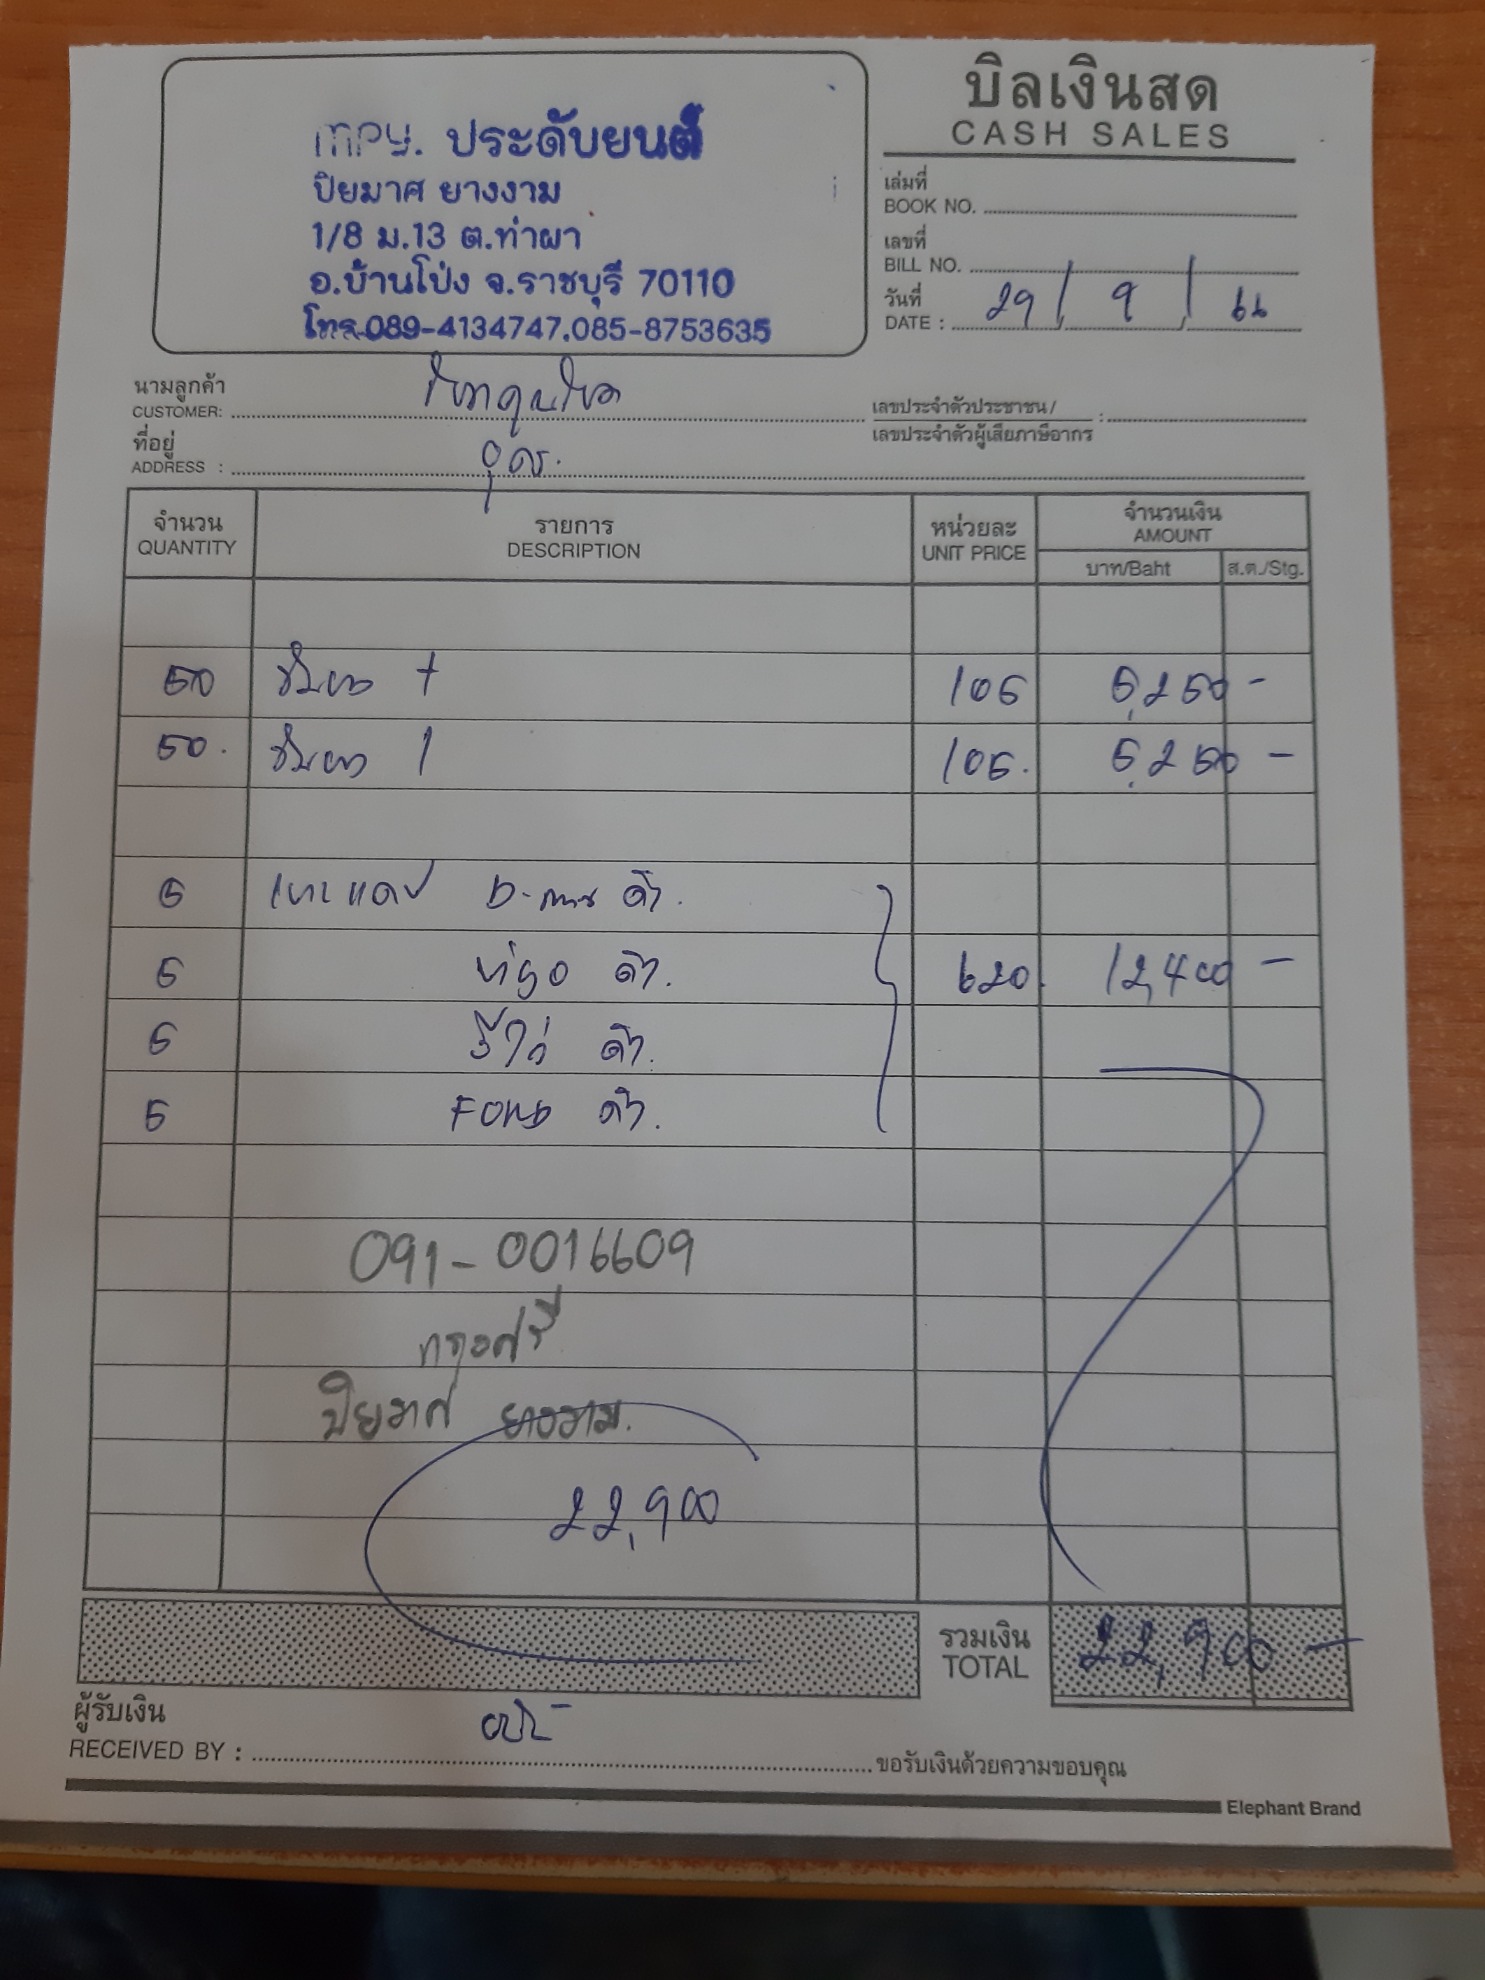 บิลเงินสด
CASH SALES
mpy. ประดับยนต์
ปิยมาศ ยางงาม
1/8 ม.13 ต.ท่าผา
อ.บ้านโป่ง จ.ราชบุรี 70110
โทร.089-4134747,085-8753635
เล่มที่
BOOK NO.
เลขที่
BILL NO.
วันที่
DATE : 29 / 9 / 66
นามลูกค้า
CUSTOMER:
เลขประจำตัวประชาชน /
เลขประจำตัวผู้เสียภาษีอากร :
ที่อยู่ อุดร.
ADDRESS :
จำนวน รายการ หน่วยละ จำนวนเงิน
QUANTITY DESCRIPTION UNIT PRICE AMOUNT
บาท/Baht ส.ต./Stg.
50 + 105 5,250 -
50. 1 105. 5,250 -
5 D- ดำ.
5 วีโก้ ดำ. 620. 12,400 -
5 รีโว่ ดำ.
5 FORD ดำ.
091-0016609
กรุงศรี
ปิยมาศ ยางงาม.
22,900
รวมเงิน
TOTAL 22,900 -
ผู้รับเงิน
RECEIVED BY : ขอรับเงินด้วยความขอบคุณ
Elephant Brand